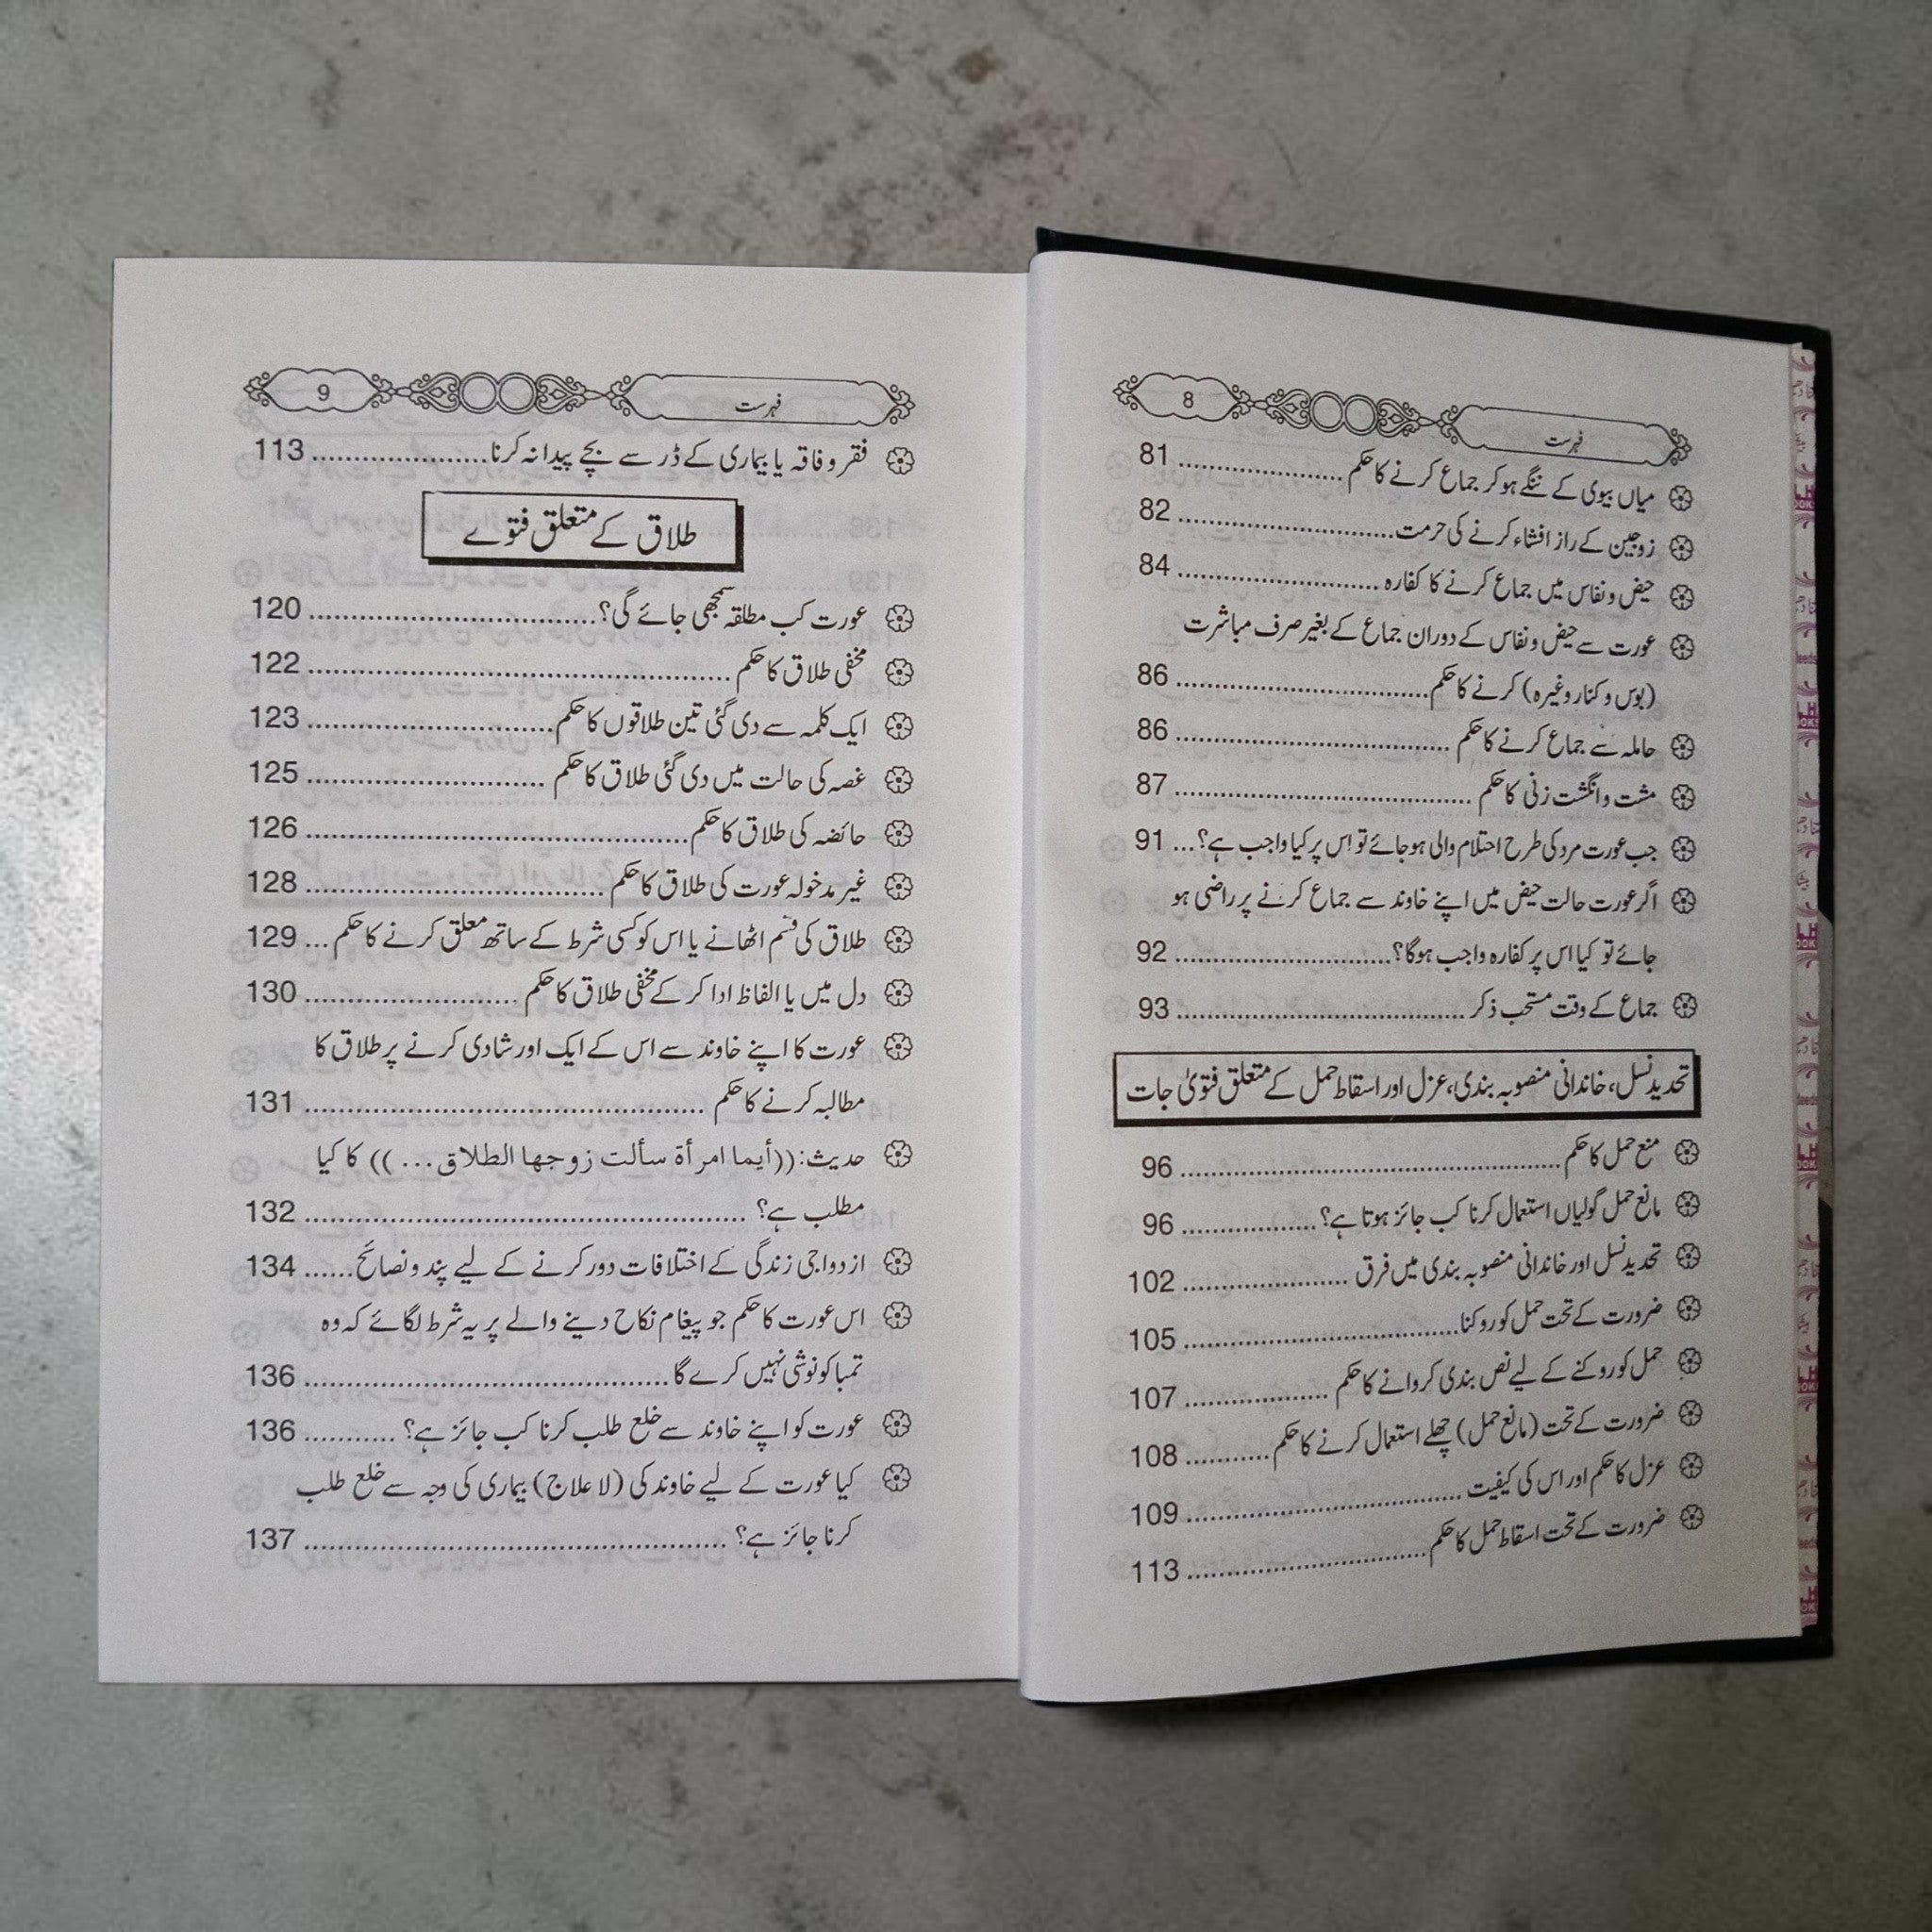 8 فہرست
میاں بیوی کے ننگے ہوکر جماع کرنے کا حکم ........................ 81
زوجین کے راز افشاء کرنے کی حرمت ........................ 82
حیض و نفاس میں جماع کرنے کا کفارہ ........................ 84
عورت سے حیض و نفاس کے دوران جماع کے بغیر صرف مباشرت
(بوس و کنار وغیرہ) کرنے کا حکم ........................ 86
حاملہ سے جماع کرنے کا حکم ........................ 86
مشت و انگشت زنی کا حکم ........................ 87
جب عورت مرد کی طرح احتلام والی ہوجائے تو اِس پر کیا واجب ہے؟ ... 91
اگر عورت حالت حیض میں اپنے خاوند سے جماع کرنے پر راضی ہو
جائے تو کیا اس پر کفارہ واجب ہوگا؟ ........................ 92
جماع کے وقت مستحب ذکر ........................ 93
تحدید نسل، خاندانی منصوبہ بندی، عزل اور اسقاط حمل کے متعلق فتویٰ جات
منع حمل کا حکم ........................ 96
مانع حمل گولیاں استعمال کرنا کب جائز ہوتا ہے؟ ................ 96
تحدید نسل اور خاندانی منصوبہ بندی میں فرق ................ 102
ضرورت کے تحت حمل کو روکنا ........................ 105
حمل کو روکنے کے لیے نس بندی کروانے کا حکم ................ 107
ضرورت کے تحت (مانع حمل) چھلے استعمال کرنے کا حکم ........... 108
عزل کا حکم اور اس کی کیفیت ........................ 109
ضرورت کے تحت اسقاط حمل کا حکم ........................ 113
9 فہرست
فقر و فاقہ یا بیماری کے ڈر سے بچے پیدا نہ کرنا ........................ 113
طلاق کے متعلق فتوے
عورت کب مطلقہ سمجھی جائے گی؟ ........................ 120
مخفی طلاق کا حکم ........................ 122
ایک کلمہ سے دی گئی تین طلاقوں کا حکم ........................ 123
غصہ کی حالت میں دی گئی طلاق کا حکم ........................ 125
حائضہ کی طلاق کا حکم ........................ 126
غیر مدخولہ عورت کی طلاق کا حکم ........................ 128
طلاق کی قسم اٹھانے یا اس کو کسی شرط کے ساتھ معلق کرنے کا حکم ... 129
دل میں یا الفاظ ادا کر کے مخفی طلاق کا حکم ........................ 130
عورت کا اپنے خاوند سے اس کے ایک اور شادی کرنے پر طلاق کا
مطالبہ کرنے کا حکم ........................ 131
حدیث: ((أیما امرأة سألت زوجها الطلاق ...)) کا کیا
مطلب ہے؟ ........................ 132
ازدواجی زندگی کے اختلافات دور کرنے کے لیے پند و نصائح ...... 134
اس عورت کا حکم جو پیغام نکاح دینے والے پر یہ شرط لگائے کہ وہ
تمباکو نوشی نہیں کرے گا ........................ 136
عورت کو اپنے خاوند سے خلع طلب کرنا کب جائز ہے؟ ........... 136
کیا عورت کے لیے خاوند کی (لا علاج) بیماری کی وجہ سے خلع طلب
کرنا جائز ہے؟ ........................ 137